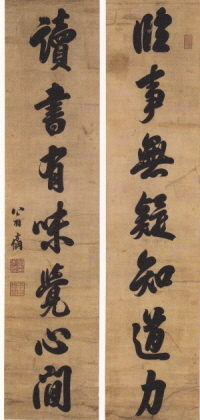 臨事無疑知道力
讀書有味覺心閒